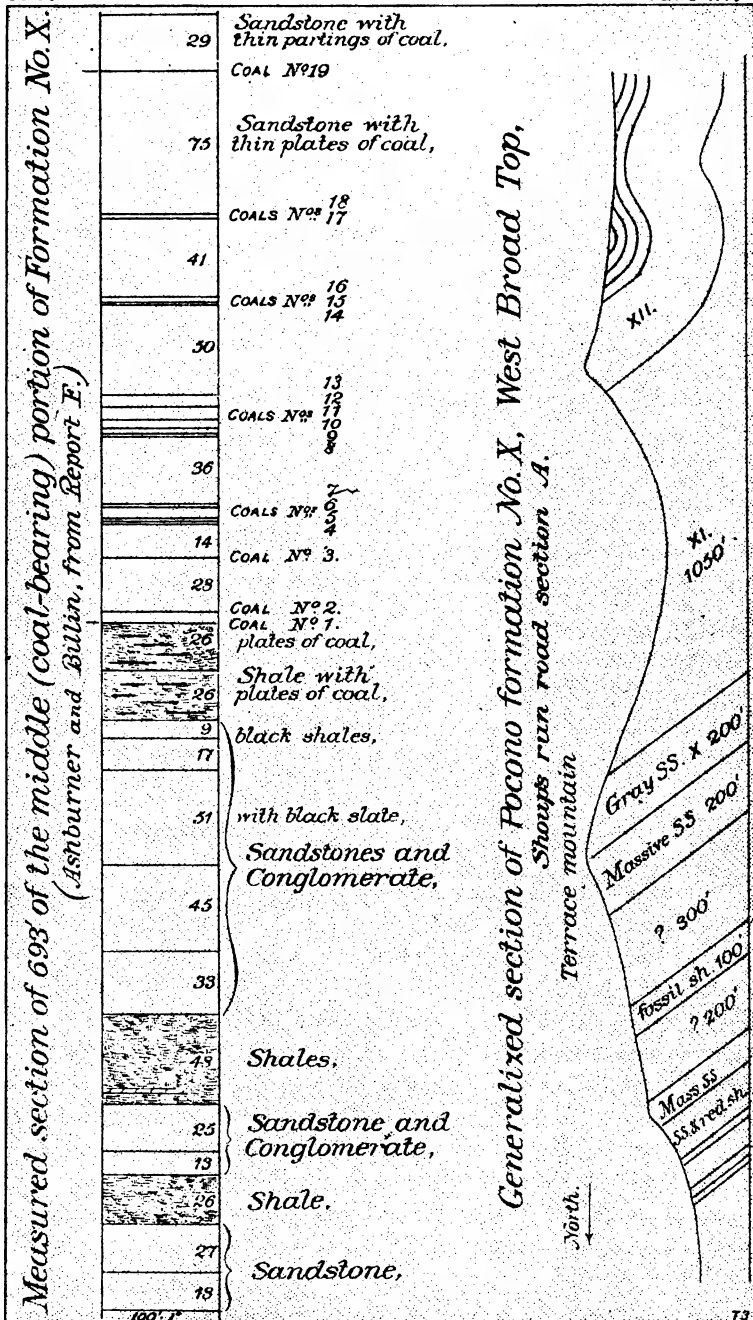 Measured section of 693' of the middle (coal-bearing) portion of Formation No. X.
(Ashburner and Billin, from Report F.)
29
Sandstone with
thin partings of coal,
COAL Nº 19
75
Sandstone with
thin plates of coal,
COALS Nºs 18
17
41
COALS Nºs 16
15
14
50
COALS Nºs 13
12
11
10
9
8
36
COALS Nºs 7
6
5
4
14
COAL Nº 3.
28
COAL Nº 2.
COAL Nº 1.
26
plates of coal,
26
Shale with
plates of coal,
9
black shales,
17
51
with black slate,
Sandstones and
Conglomerate,
45
33
48
Shales,
25
Sandstone and
Conglomerate,
13
26
Shale,
27
Sandstone,
18
100'. 1"
Generalized section of Pocono formation No. X, West Broad Top,
Shoups run road section A.
Terrace mountain
XII.
XI.
1050'
Gray SS. X 200'
Massive SS 200'
? 300'
fossil sh. 100'
? 200'
Mass SS
SS & red sh.
North.
73